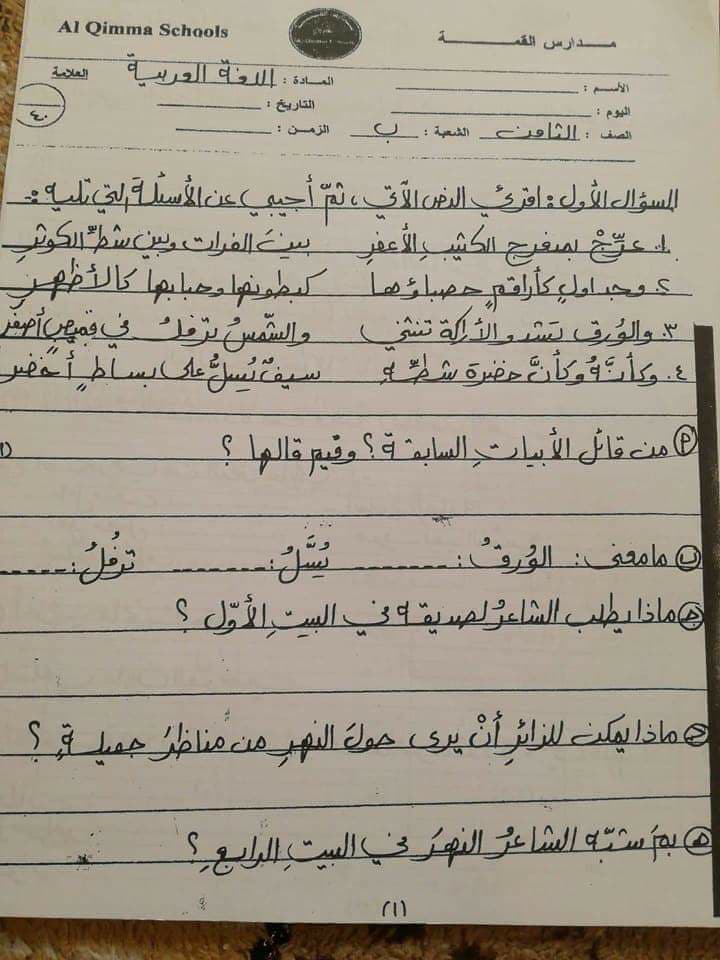 Al Qimma Schools
مـدارس القمـــة
الأسـم :
المـادة : اللغة العربية
العلامة
اليوم :
التاريخ :
٤٠
الصف : الثامن الشعبة : ب الزمن :
السؤال الأول : اقرئي النص الآتي ، ثمّ أجيبي عن الأسئلة التي تليه :-
١. عرّجْ بمنعرج الكثيبِ الأعفرِ بينَ الفرات وبين شطِّ الكوثرِ
٢. وجداولٍ كأراقمٍ حصباؤها كبطونها وحبابها كالأظهرِ
٣. والوُرق تشدو والأراكة تنثني والشّمسُ ترفلُ في قميصٍ أصفرِ
٤. وكأنَّهُ وكأنَّ خضرة شطِّهِ سيفٌ يُسلُّ على بساطٍ أخضرِ
أ من قائل الأبياتِ السابقة ؟ وفيم قالها ؟
ب ما معنى : الوُرقُ : ------- يُسَلُّ : ------- ترفُلُ : -----
ج ماذا يطلب الشاعرُ لصديقه في البيتِ الأوّل ؟
د ماذا يمكن للزائرِ أنْ يرى حولَ النهرِ من مناظرَ جميلةٍ ؟
هـ بمَ شبّه الشاعرُ النهرَ في البيتِ الرابعِ ؟
(١)